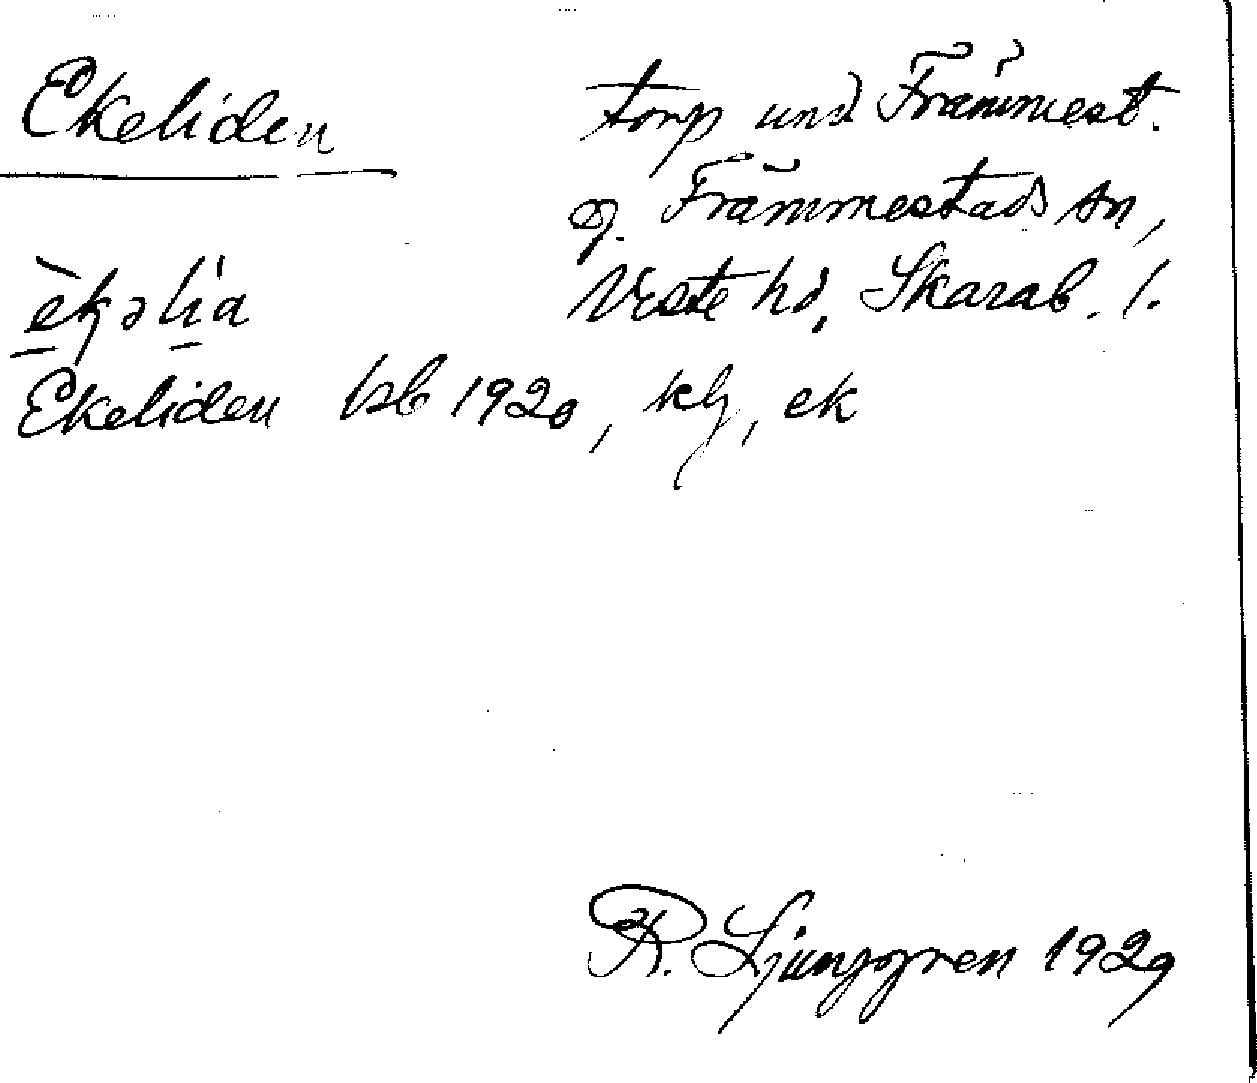 Ekeliden
torp und Främmest.
g. Främmestads sn,
Viste hd, Skarab. l.
èkəlia
Ekeliden hsb 1920, klg, ek
R. Ljunggren 1929